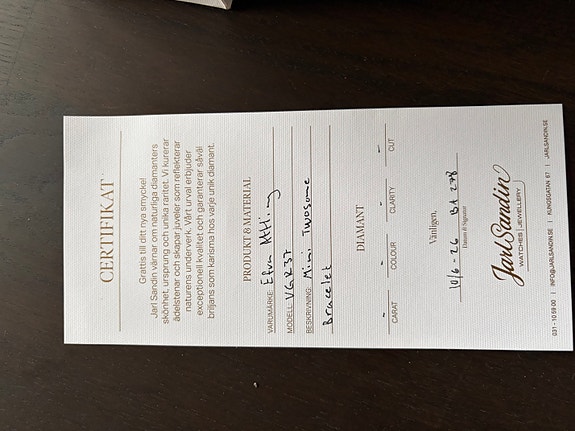 CERTIFIKAT
Grattis till ditt nya smycke!
Jarl Sandin värnar om naturliga diamanters
skönhet, ursprung och unika raritet. Vi kurerar
ädelstenar och skapar juveler som reflekterar
naturens underverk. Vårt urval erbjuder
exceptionell kvalitet och garanterar såväl
briljans som karisma hos varje unik diamant.
PRODUKT & MATERIAL
VARUMÄRKE: Efva Attling
MODELL: VGR37
BESKRIVNING: Mini Twosome
Bracelet
DIAMANT
- - - -
CARAT COLOUR CLARITY CUT
Vänligen,
10/6-26 BA 278
Datum & Signatur
Jarl Sandin
WATCHES | JEWELLERY
031 - 10 59 00 | INFO@JARLSANDIN.SE | KUNGSGATAN 67 | JARLSANDIN.SE